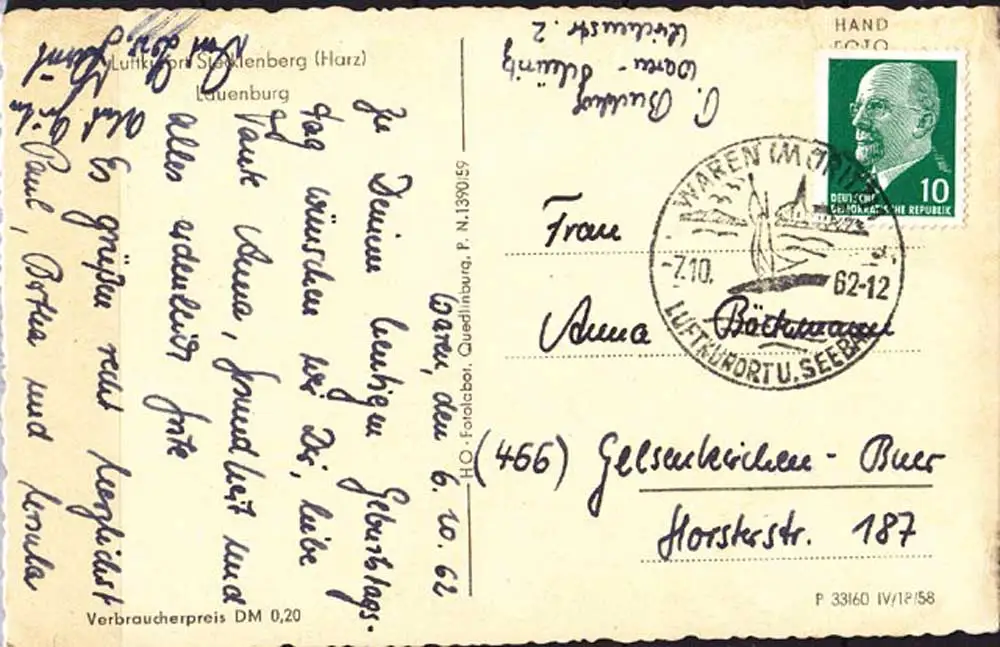 Luftkurort Stecklenberg (Harz)
Lauenburg
Waren, den 6.10.62
Zu Deinem heutigen Geburtstags-
tag wünschen wir Dir, liebe
Tante Anna, Gesundheit und
alles erdenklich Gute
Es grüßen recht herzlichst
Paul, und
HO-Fotolabor, Quedlinburg, P. N. 1390/59
Waren-
2
HAND
FOTO
10
DEUTSCHE
DEMOKRATISCHE REPUBLIK
WAREN (MÜRITZ)
-7.10. 62-12
LUFTKURORT U. SEEBAD
Frau
Anna Böckmann
(466) Gelsenkirchen-Buer
Horsterstr. 187
Verbraucherpreis DM 0,20
P 33/60 IV/18/58